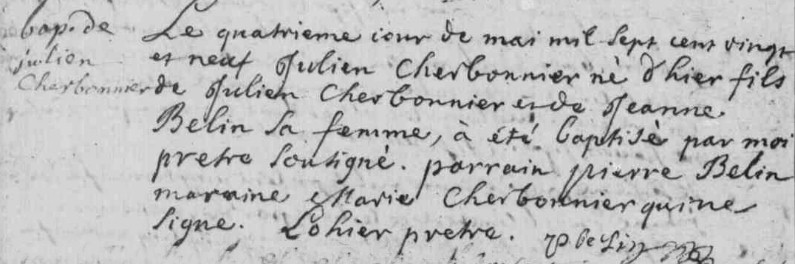 bap. de
julien
Cherbonnier
Le quatrieme iour de mai mil sept cent vingt
et neuf Julien Cherbonnier né d'hier fils
de Julien Cherbonnier et de Jeanne
Belin sa femme, à été baptisé par moi
pretre soutigné. parrain pierre Belin
maraine Marie Cherbonnier qui ne
signe. Lohier pretre. P belin